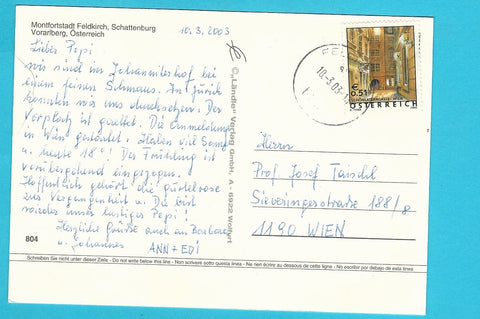 Montfortstadt Feldkirch, Schattenburg
Vorarlberg, Österreich
10.3.2003
Lieber Pepi
wir sind im Johanniterhof bei
einem feinen Schmaus. In Zürich
konnten wir uns durchsetzen. Der
Vorplatz ist gerettet. Die Anmeldung
in Wien gestartet. Haben viel Sonne
u. heute 18°! Der Frühling ist
vorübergehend eingezogen.
Hoffentlich gehört die Gürtelrose
zur Vergangenheit u. Du bist
wieder unser lustiger Pepi!
Herzliche Grüsse auch an Barbara
u. Johannes
ANN + EDI
804
Schreiben Sie nicht unter dieser Zeile - Do not write below this line - Non scrivere sotto questa linea - Ne rien écrire au dessous de cette ligne - No escribir por debajo de esta linea
© „Ländle" Verlag GmbH, A - 6922 Wolfurt
€ 0.51
ÖSTERREICH
Herrn
Prof Josef Taischl
Sieveringerstrasse 188/8
1190 WIEN